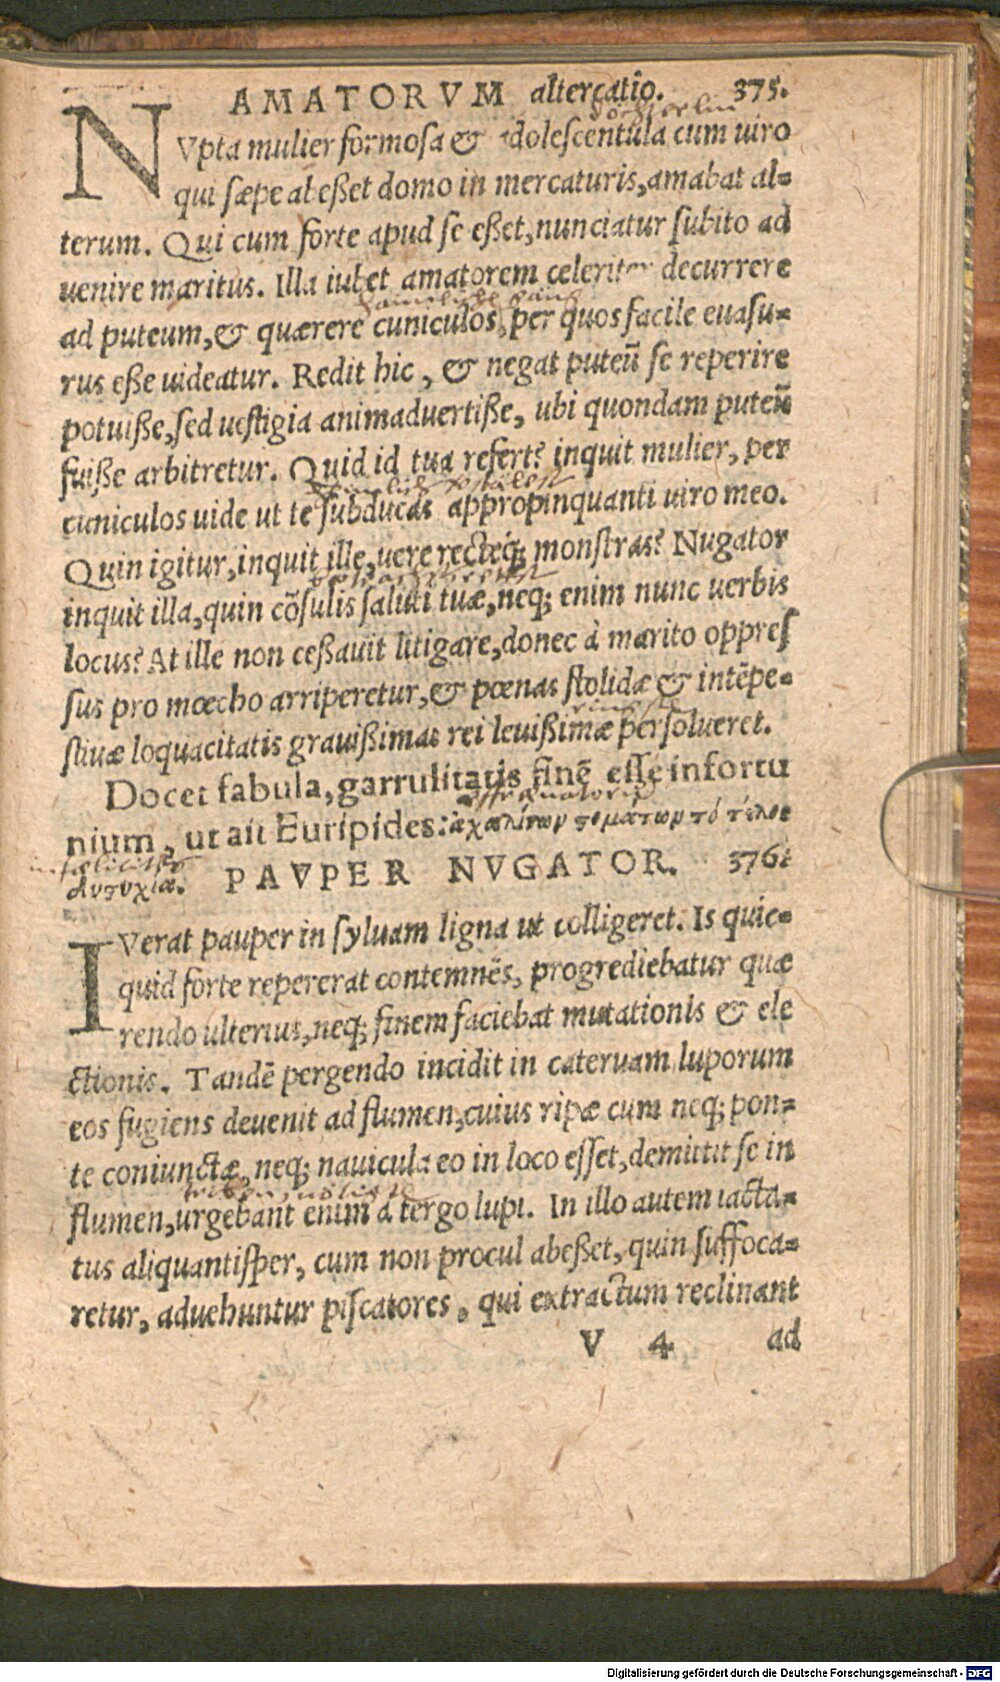 AMATORVM altercatio. 375.
NVpta mulier formosa & adolescentula cum uiro
qui sæpe abeßet domo in mercaturis, amabat al=
terum. Qui cum forte apud se eßet, nunciatur subito ad
uenire maritus. Illa iubet amatorem celeriter decurrere
ad puteum, & quærere cuniculos, per quos facile euasu=
rus eße uideatur. Redit hic, & negat puteũ se reperire
potuiße, sed uestigia animaduertiße, ubi quondam puteũ
fuiße arbitretur. Quid id tua refert? inquit mulier, per
cuniculos uide ut te subducas appropinquanti uiro meo.
Quin igitur, inquit ille, uere recteq́; monstras? Nugator
inquit illa, quin cõsulis saluti tuæ, neq; enim nunc uerbis
locus? At ille non ceßauit litigare, donec à marito oppreſ
sus pro mœcho arriperetur, & pœnas stolidæ & intẽpe=
stiuæ loquacitatis grauißimas rei leuißimæ persolueret.
Docet fabula, garrulitatis finẽ esse infortu
nium, ut ait Euripides: ἀχαλίνων στομάτων τὸ τέλος
infœlicitas
δυστυχία. PAVPER NVGATOR. 376.
IVerat pauper in syluam ligna ut colligeret. Is quic=
quid forte repererat contemnẽs, progrediebatur quæ
rendo ulterius, neq; finem faciebat mutationis & ele
ctionis. Tandẽ pergendo incidit in cateruam luporum
eos fugiens deuenit ad flumen, cuius ripæ cum neq; pon=
te coniunctæ, neq; nauicula eo in loco esset, demittit se in
flumen, urgebant enim à tergo lupi. In illo autem iacta=
tus aliquantisper, cum non procul abeßet, quin suffoca=
retur, aduehuntur piscatores, qui extractum reclinant
V 4 ad
Digitalisierung gefördert durch die Deutsche Forschungsgemeinschaft - DFG